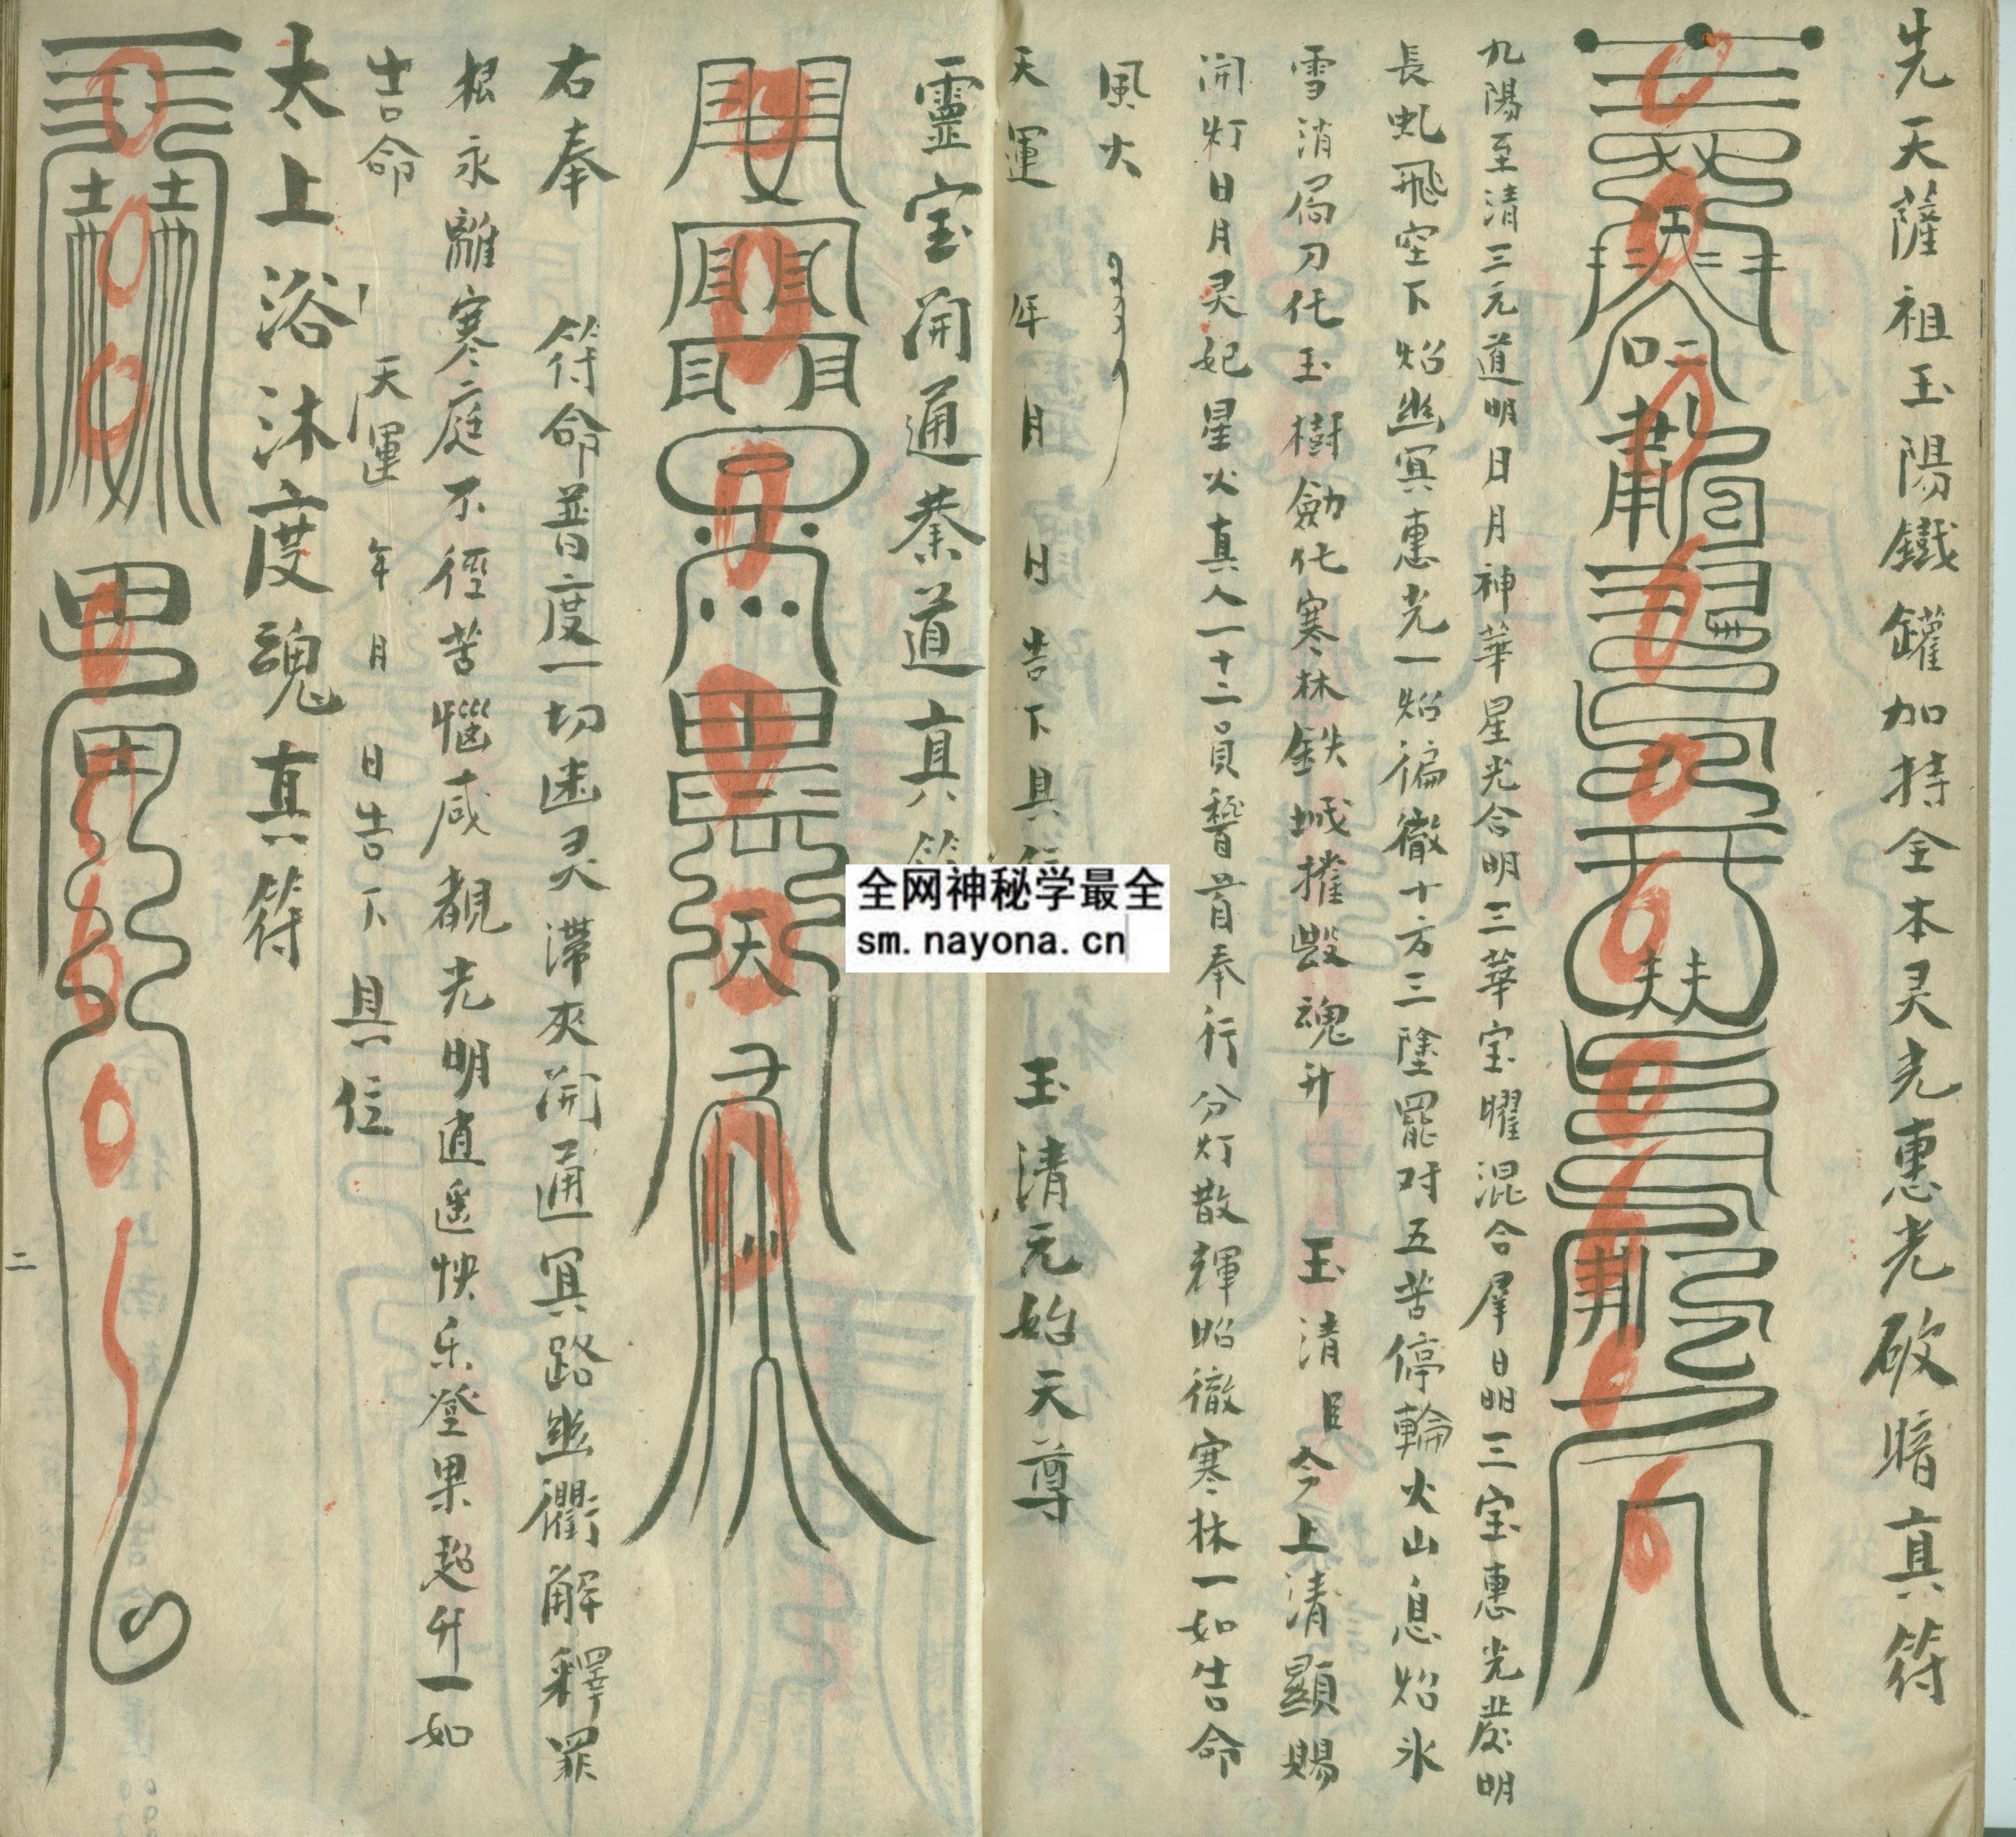 先天薩祖玉陽鐵罐加持全本灵光惠光破暗真符
九陽至清三元道明日月神華星光合明三華宝曜混合犀日明三宝惠光發明
長虬飛空下焰幽冥惠光一焰徧徹十方三塗罷对五苦停輪火山息焰氷
雪消局刀化玉樹劍化寒林鉄城摧毀魂升 玉清 臣今上清顯賜
開灯日月灵妃星火真人一十二員稽首奉行分灯散輝昭徹寒林一如告命
風火
天運 年 月 日告下具位 玉清元始天尊
靈宝開通蓁道真符
右奉 符命普度一切幽灵滯爽開通冥路幽衢解釋罪
根永離寒庭不徑苦惱咸覩光明逍遥快乐登果超升一如
告命 天運 年 月 日告下 具位
太上浴沐度魂真符
二
全网神秘学最全
sm.nayona.cn